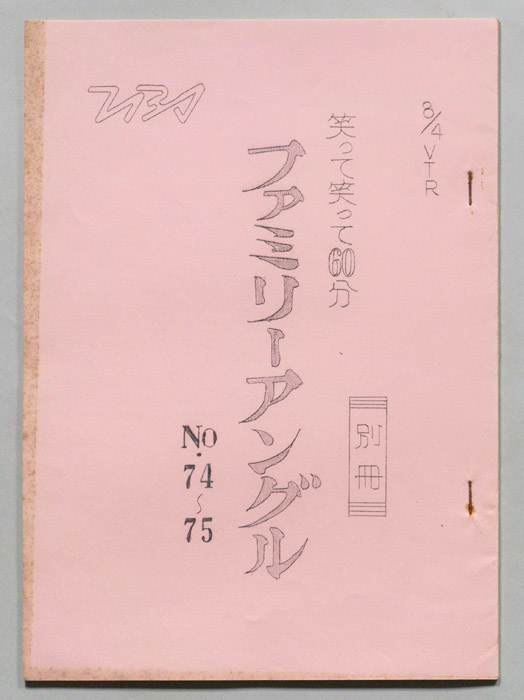 8/4 VTR
笑って笑って60分
別冊
ファミリーアングル
No.
74
〜
75